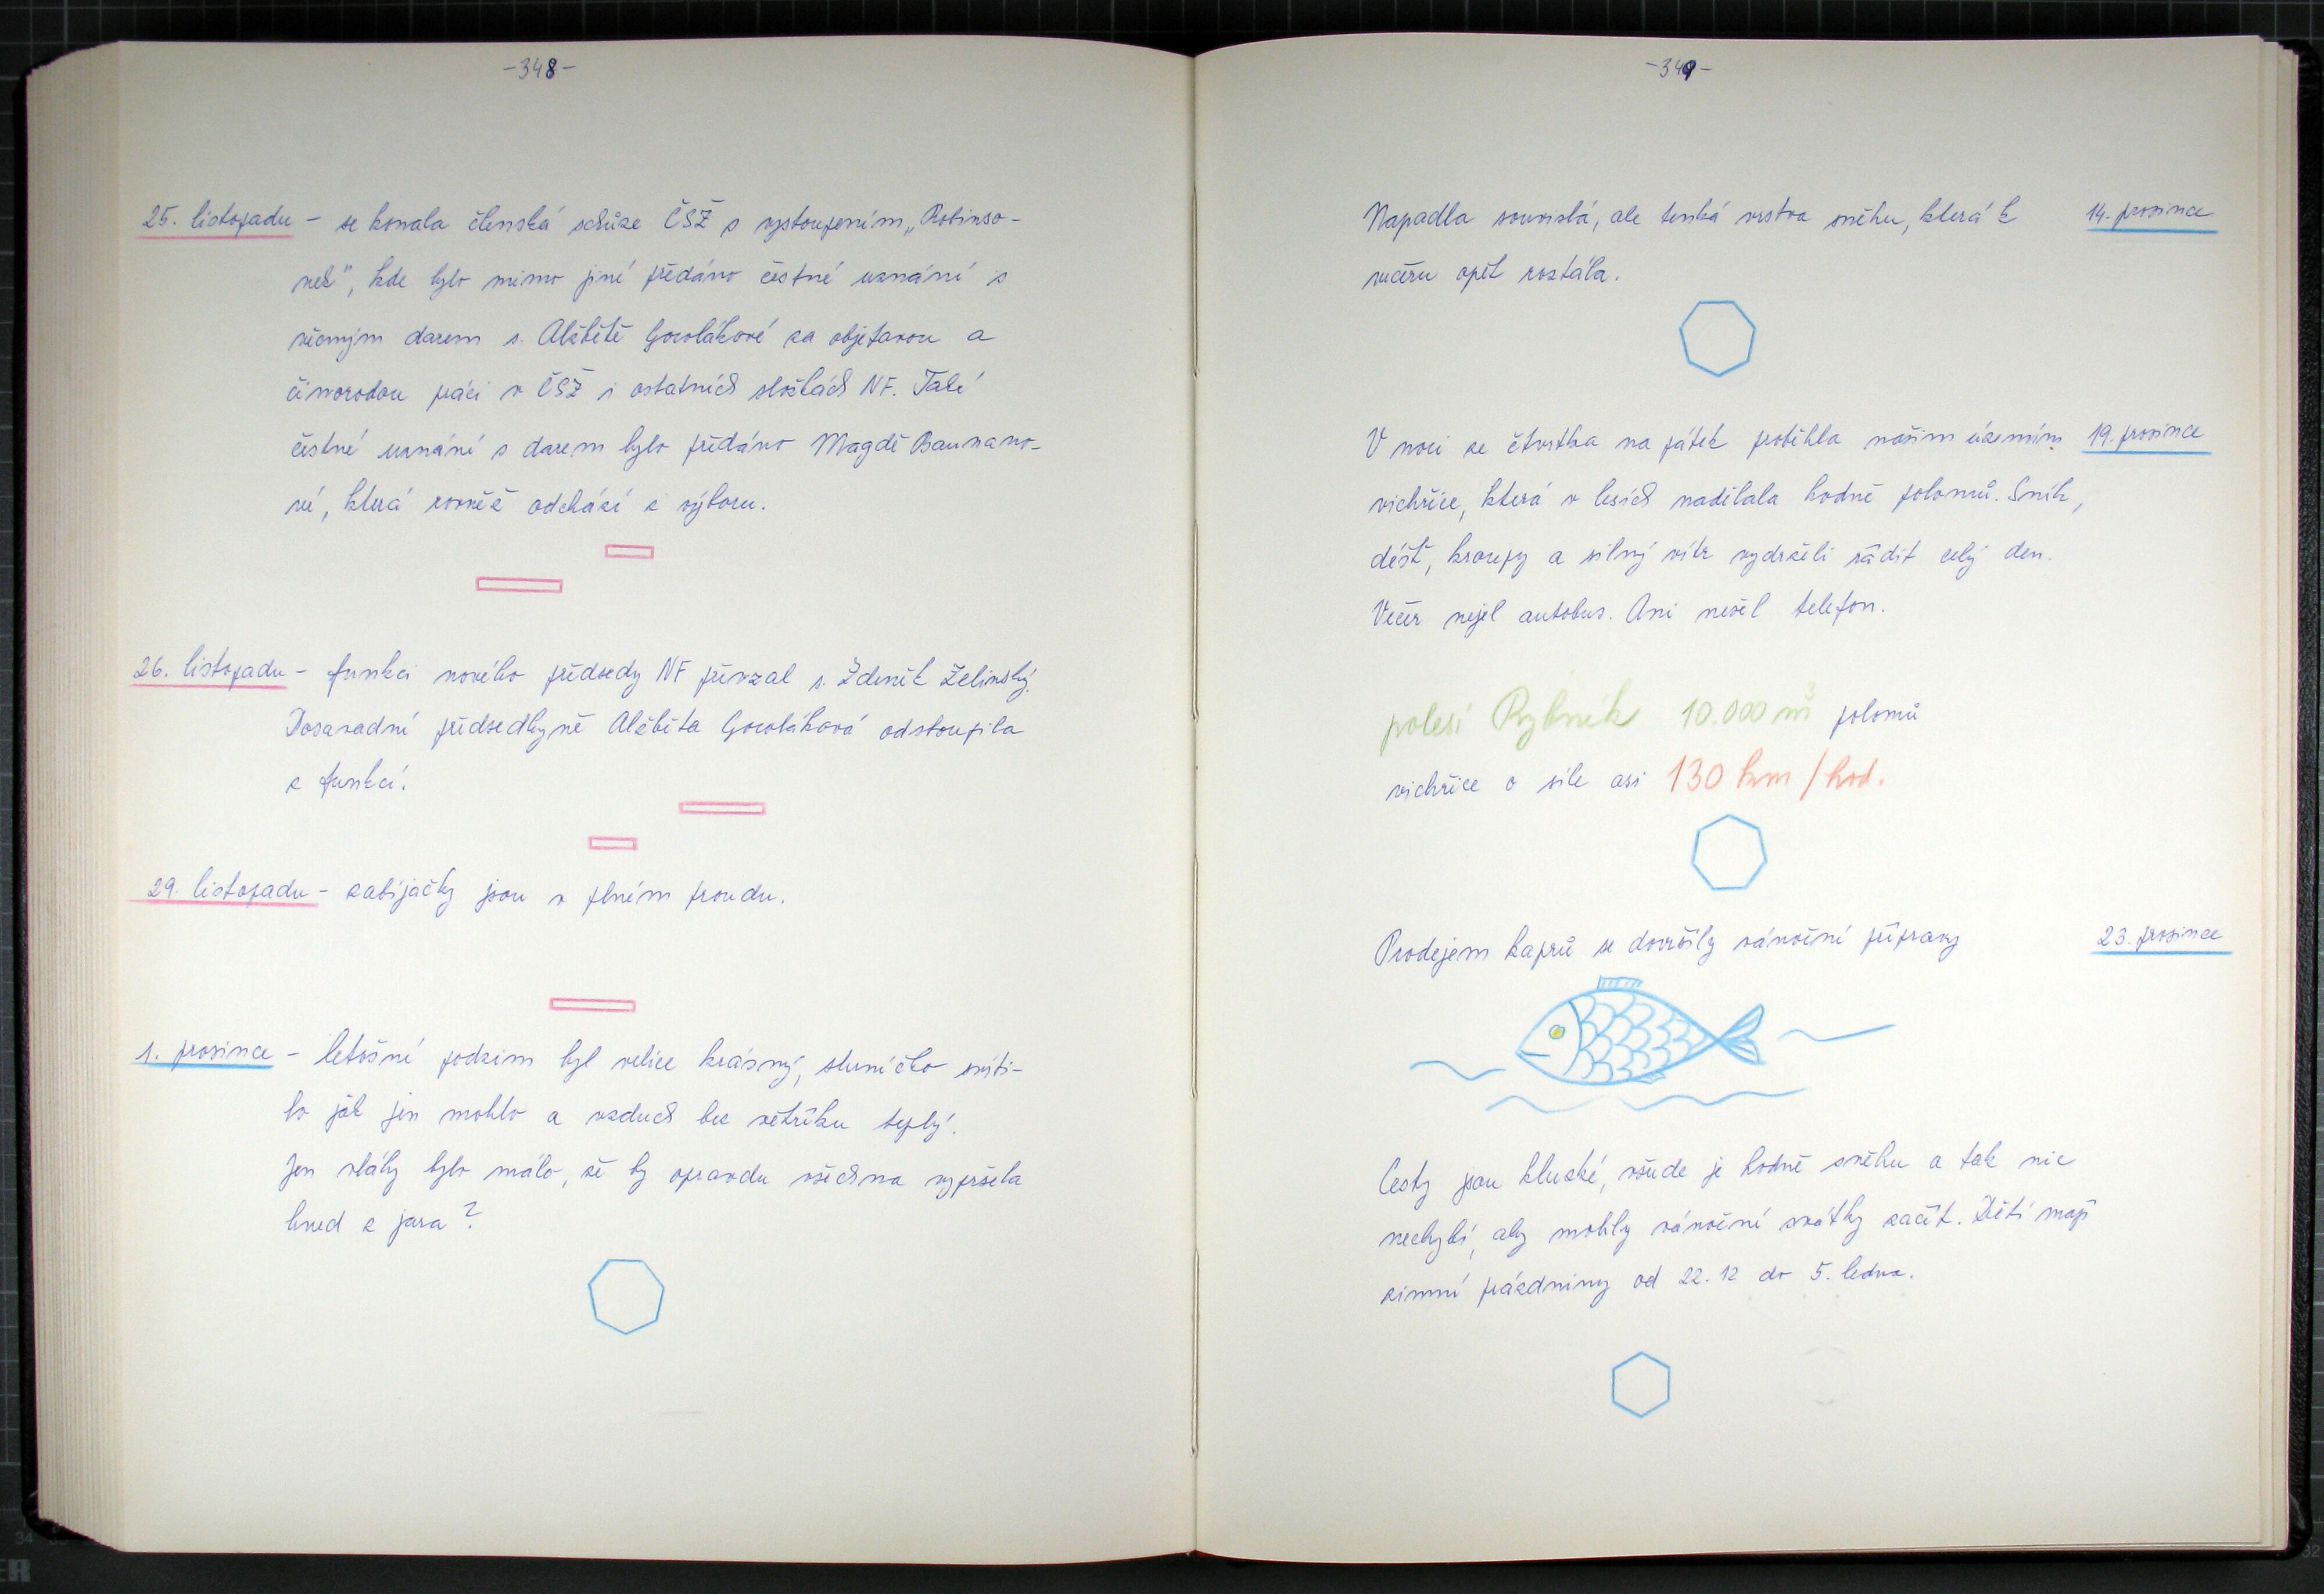 -348-
25. listopadu - se konala členská schůze ČSŽ s vystoupením „Robinso-
nek", kde bylo mimo jiné předáno čestné uznání s
věcným darem s. Alžbětě Gorolákové za objetavou a
činorodou práci v ČSŽ i ostatních složkách NF. Také
čestné uznání s darem bylo předáno Magdě Baumano-
vé, která rovněž odchází z výboru.
26. listopadu - funkci nového předsedy NF převzal s. Zdeněk Želinský.
Dosavadní předsedkyně Alžběta Goroláková odstoupila
z funkcí.
29. listopadu - zabíjačky jsou v plném proudu.
1. prosince - letošní podzim byl velice krásný, sluníčko svíti-
lo jak jen mohlo a vzduch bez větříku teplý.
Jen vláhy bylo málo, že by opravdu všechna vypršela
hned z jara?
-349-
Napadla souvislá, ale tenká vrstva sněhu, která k 14. prosince
večeru opět roztála.
V noci ze čtvrtka na pátek proběhla naším územím 19. prosince
vichřice, která v lesích nadělala hodně polomů. Sníh,
déšť, kroupy a silný vítr vydrželi řádit celý den.
Večer nejel autobus. Ani nešel telefon.
polesí Rybník 10.000 m³ polomů
vichřice o síle asi 130 km/hod.
Prodejem kaprů se dovršily vánoční přípravy 23. prosince
Cesty jsou kluzké, všude je hodně sněhu a tak nic
nechybí, aby mohly vánoční svátky začít. Děti mají
zimní prázdniny od 22. 12 do 5. ledna.